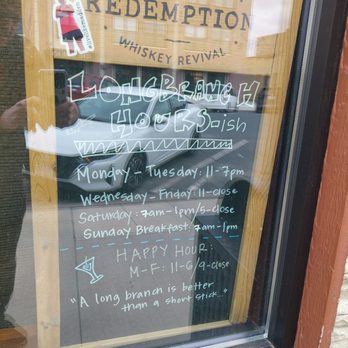 REDEMPTION
WHISKEY REVIVAL
LONGBRANCH
HOURS-ish
Monday - Tuesday: 11-7pm
Wednesday - Friday: 11-close
Saturday: 7am-1pm/5-close
Sunday Breakfast: 7am-1pm
HAPPY HOUR:
M-F: 11-6/9-close
"A long branch is better
than a short stick..."